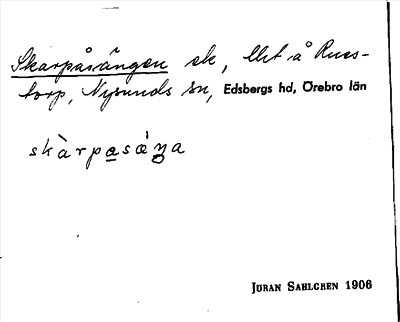 Skarpåsängen ek, lht å Russ-
torp, Nysunds sn, Edsbergs hd, Örebro län
skàrpasäŋa
JÖRAN SAHLGREN 1906